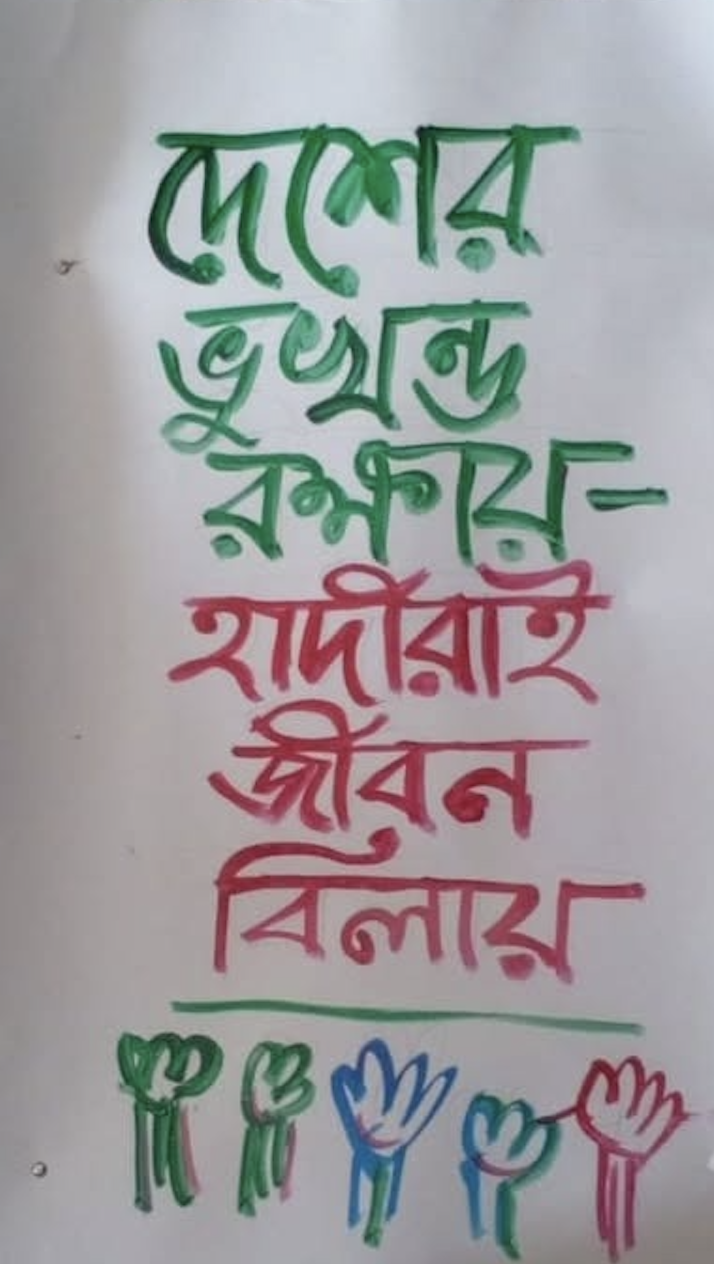 দেশের
ভুখন্ড
রক্ষায়-
হাদীরাই
জীবন
বিলায়